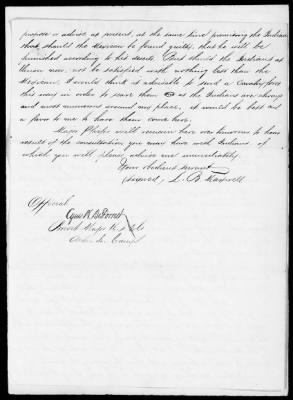 propose or advise at present at the same time promising the Indians
that should the Mexican be found guilty, that he will be
punished according to his deserts. But should the Indians at
Union now, not be satisfied with nothing less than the
Mexican I would think it advisable to send a Cavalry force
this way in order to scare them as the Indians are always
and most numerous around my place, it would be best and
a favor to me to have them come here.
Major will remain here over tomorrow to hear
result of the consultation you may have with Indians of
which you will please advise me immediately
Your obedient servant
(signed) L. B. Maxwell
Official
Cyrus H. De Forrest
Aide-de-Camp